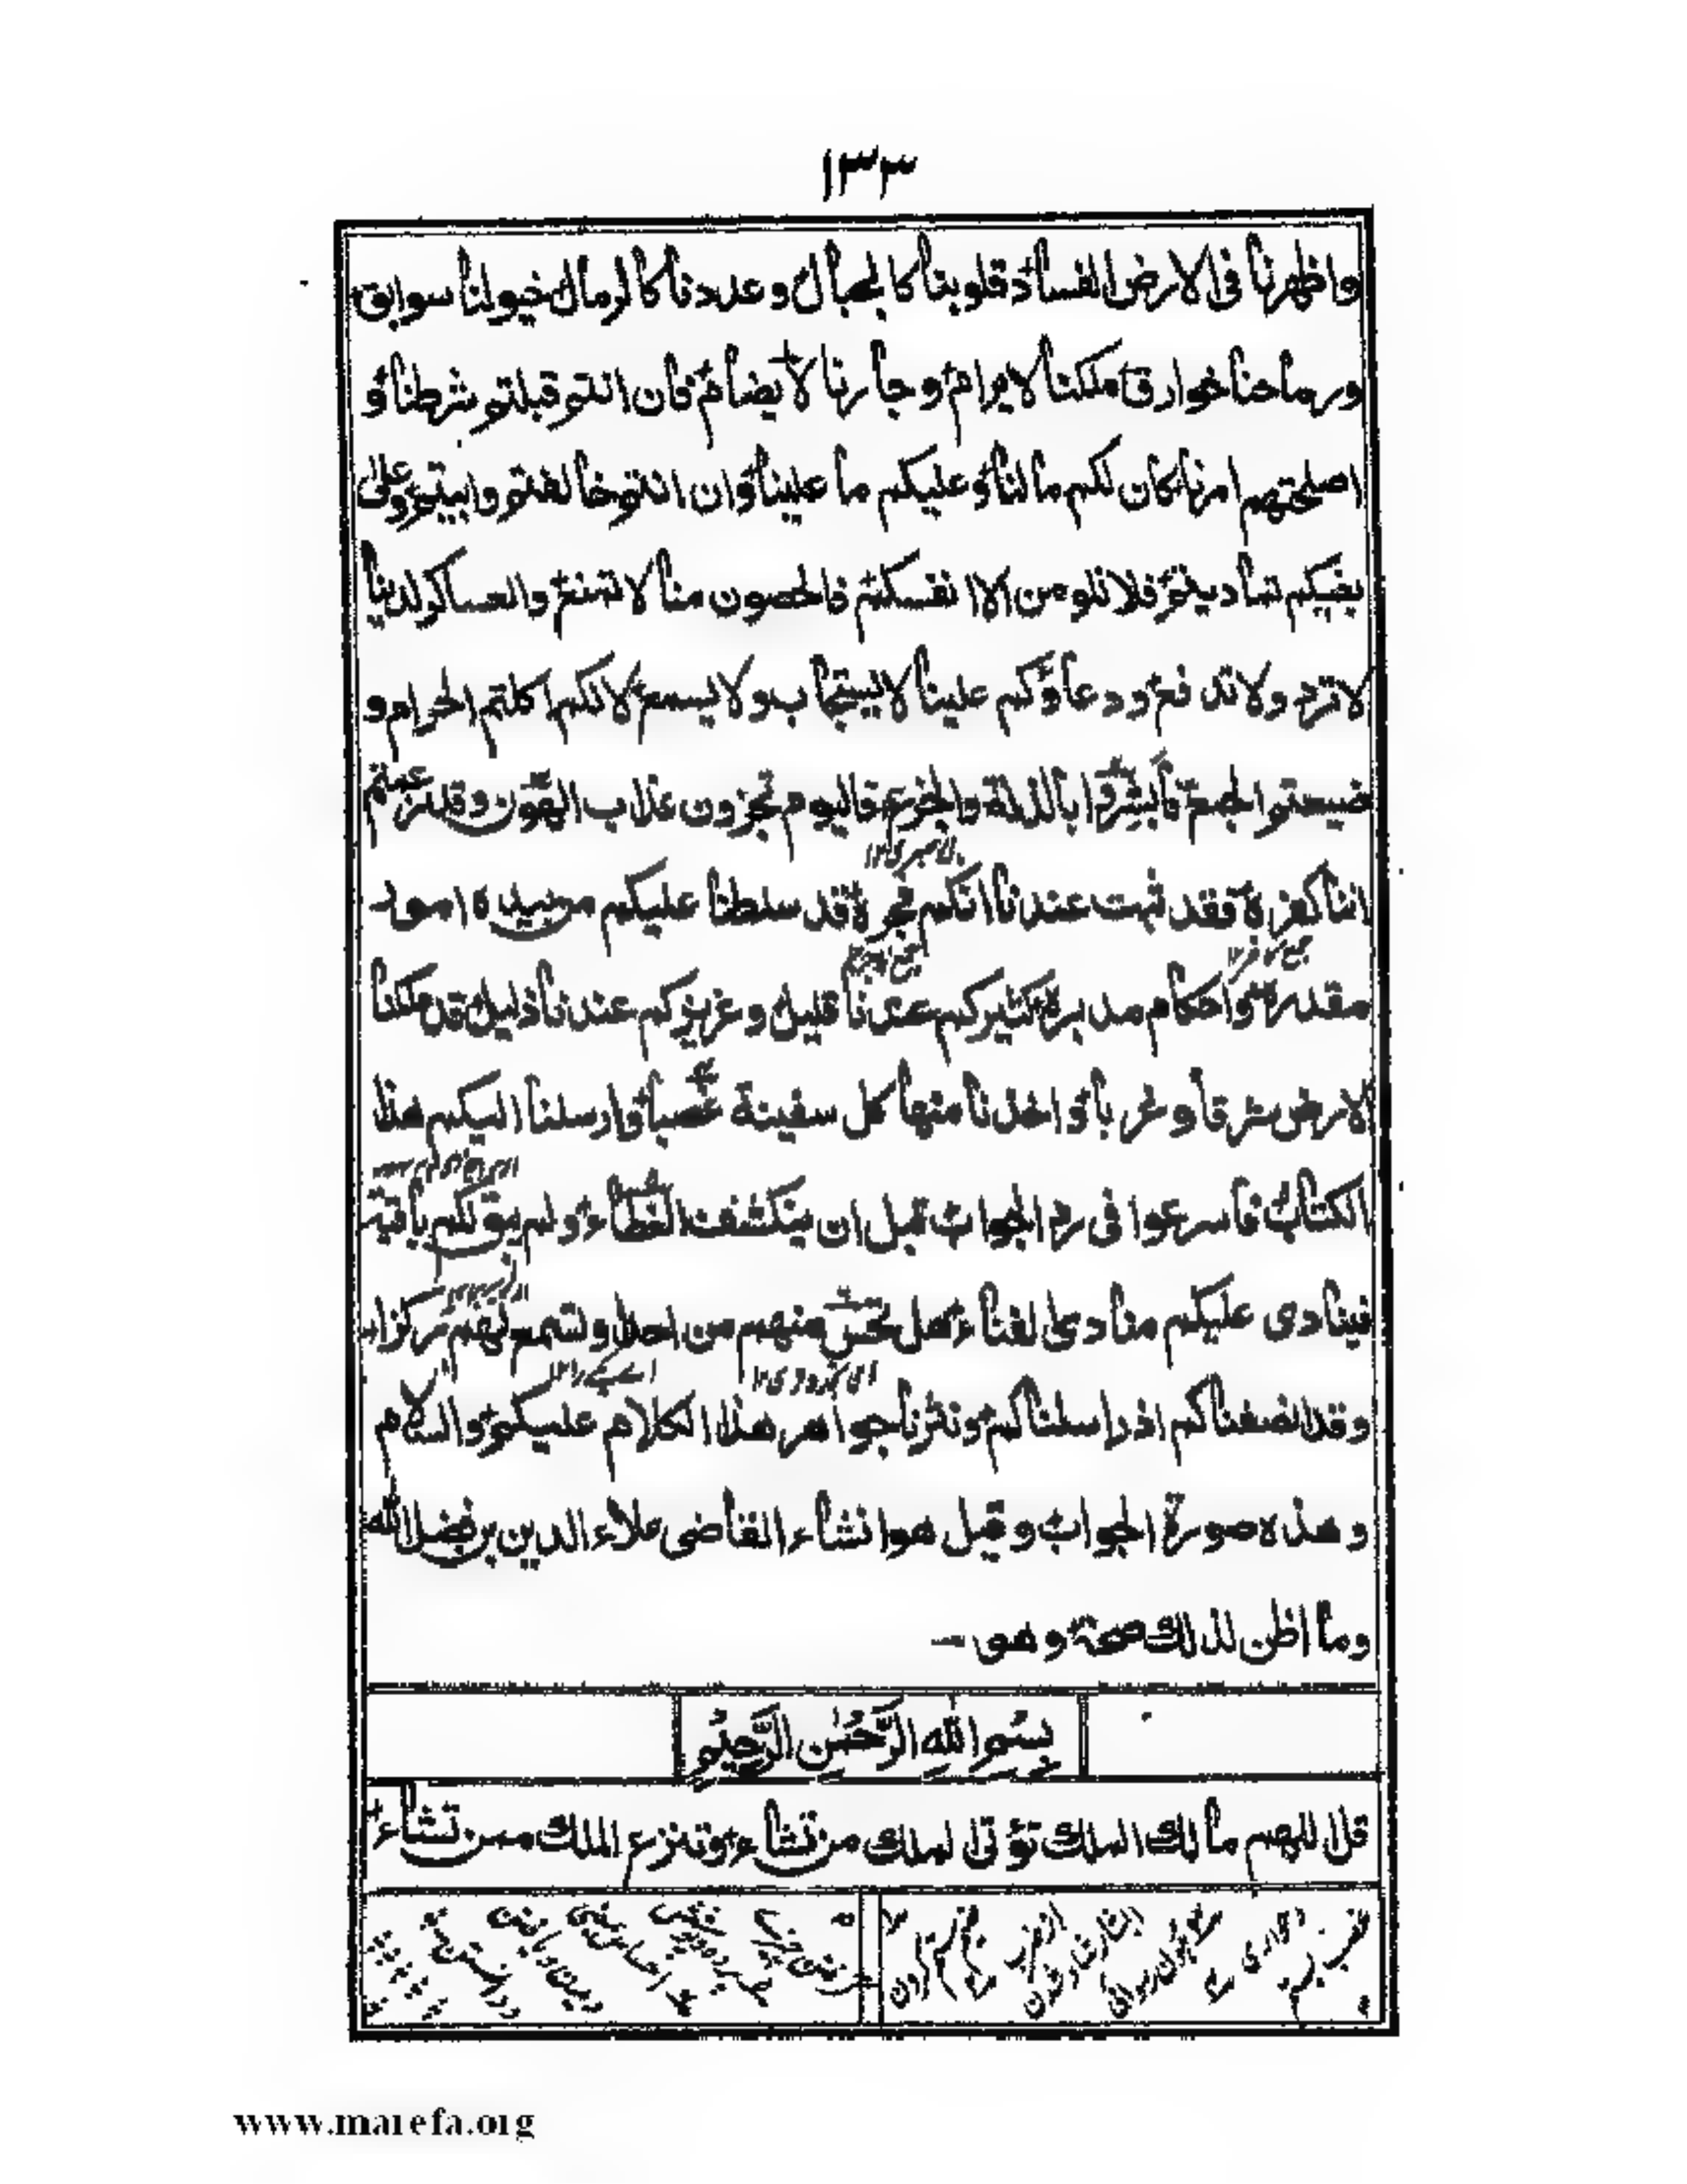 ١٣٣
واظهرنا فى الارض الفساد قلوبنا كالجبال وعددنا كالرمال خيولنا سوابق
ورماحنا خوارق ملكنا لا يرام وجارنا لا يضام فان انتم قبلتم شرطنا و
اصلحتم امرنا كان لكم ما لنا وعليكم ما علينا وان انتم خالفتم وابيتم وعلى
بغيكم تماديتم فلا تلومن الا انفسكم فالحصون منا لا تمنع والعساكر لدينا
لا ترد ولا تدفع ودعاؤكم علينا لا يستجاب ولا يسمع لانكم اكلتم الحرام و
ضيعتم الجمع فابشروا بالذلة والجزع فاليوم تجزون عذاب الهون وقد زعمتم
اننا كفرة فقد ثبت عندنا انكم فجرة قد سلطنا عليكم من بيده امور
مقدرة واحكام مدبرة كثيركم عندنا قليل وعزيزكم عندنا ذليل قد ملكنا
الارض شرقا وغربا واخذنا منها كل سفينة غصبا وارسلنا اليكم هذا
الكتاب فاسرعوا فى رد الجواب قبل ان ينكشف الغطاء ولم يبق لكم باقية
فينادى عليكم منادى الفناء هل تحس منهم من احد او تسمع لهم ركزا
وقد انصفناكم اذ راسلناكم ونثرنا جواهر هذا الكلام عليكم والسلام
وهذه صورة الجواب وقيل هو انشاء القاضى علاء الدين بن فضل الله
وما اظن لذلك صحة وهو —
بِسْمِ اللهِ الرَّحْمٰنِ الرَّحِيْمِ
قل اللهم مالك الملك تؤتى الملك من تشاء وتنزع الملك ممن تشاء
www.marefa.org